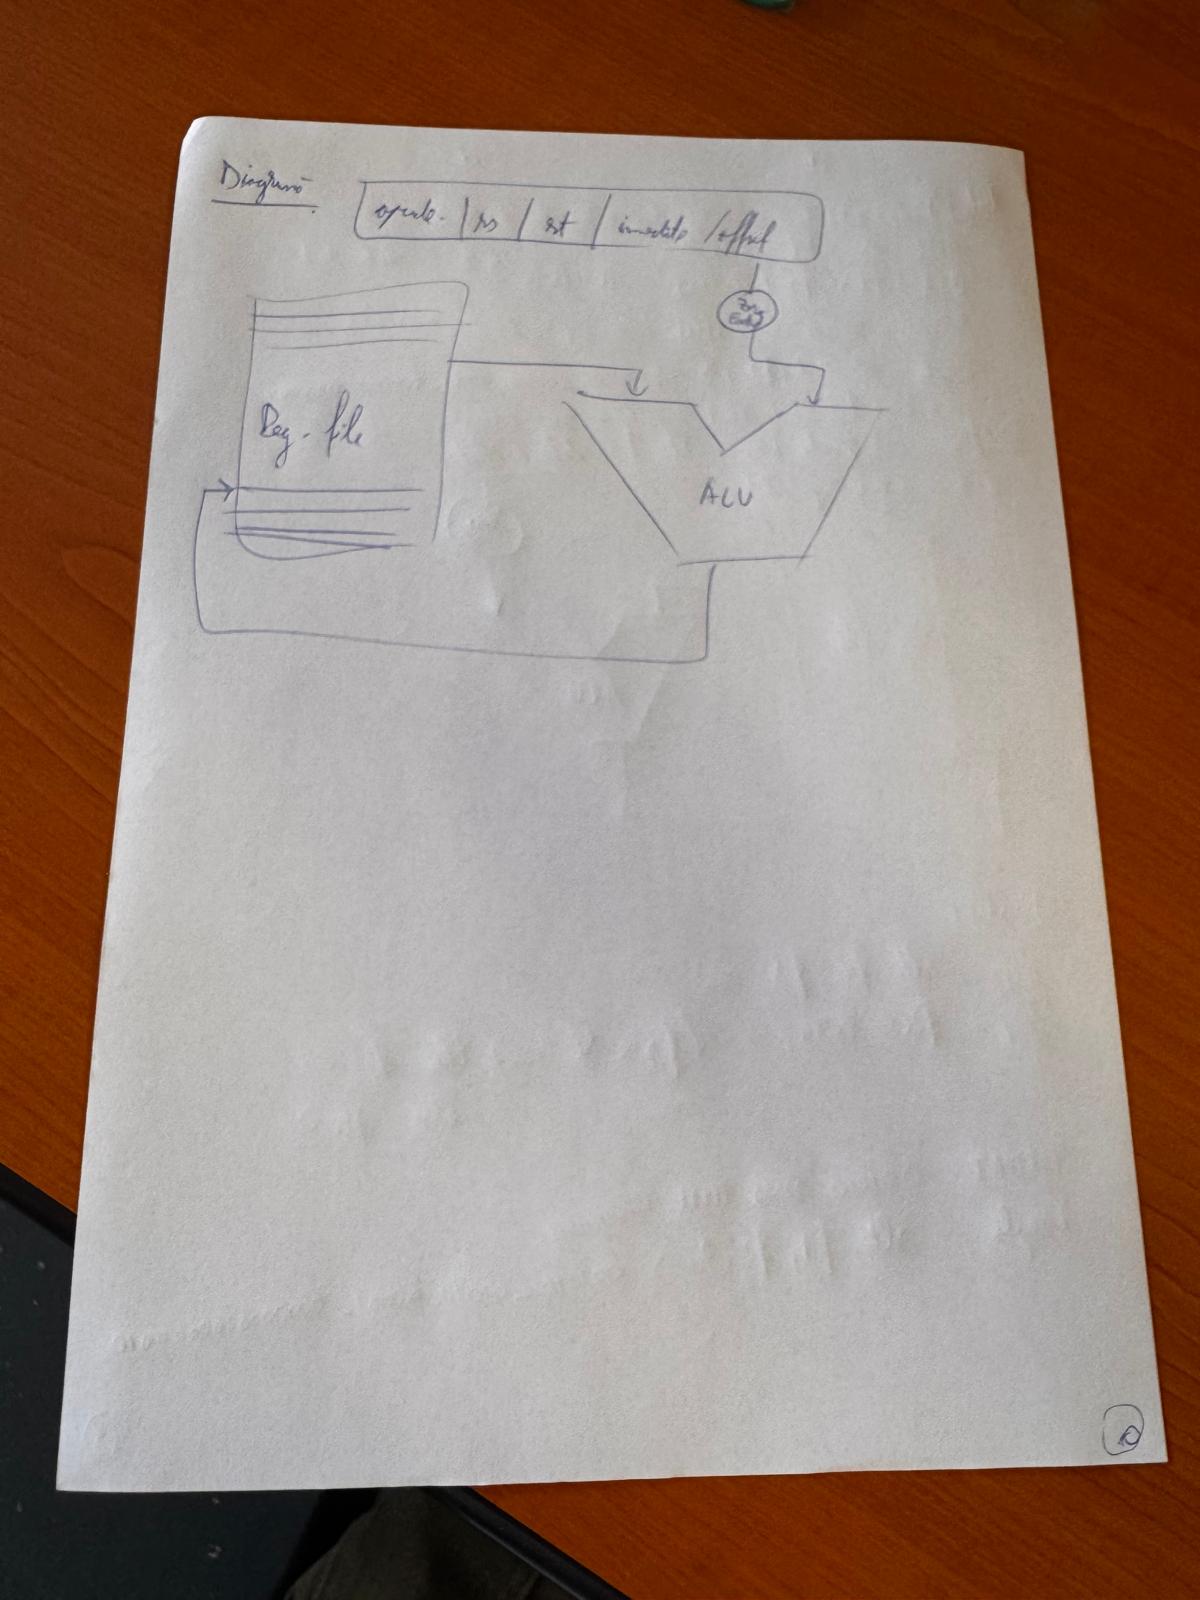 Diagram
opcode | rs | rt | immediate / offset
Zero
Extd
Reg. file
ALU
10